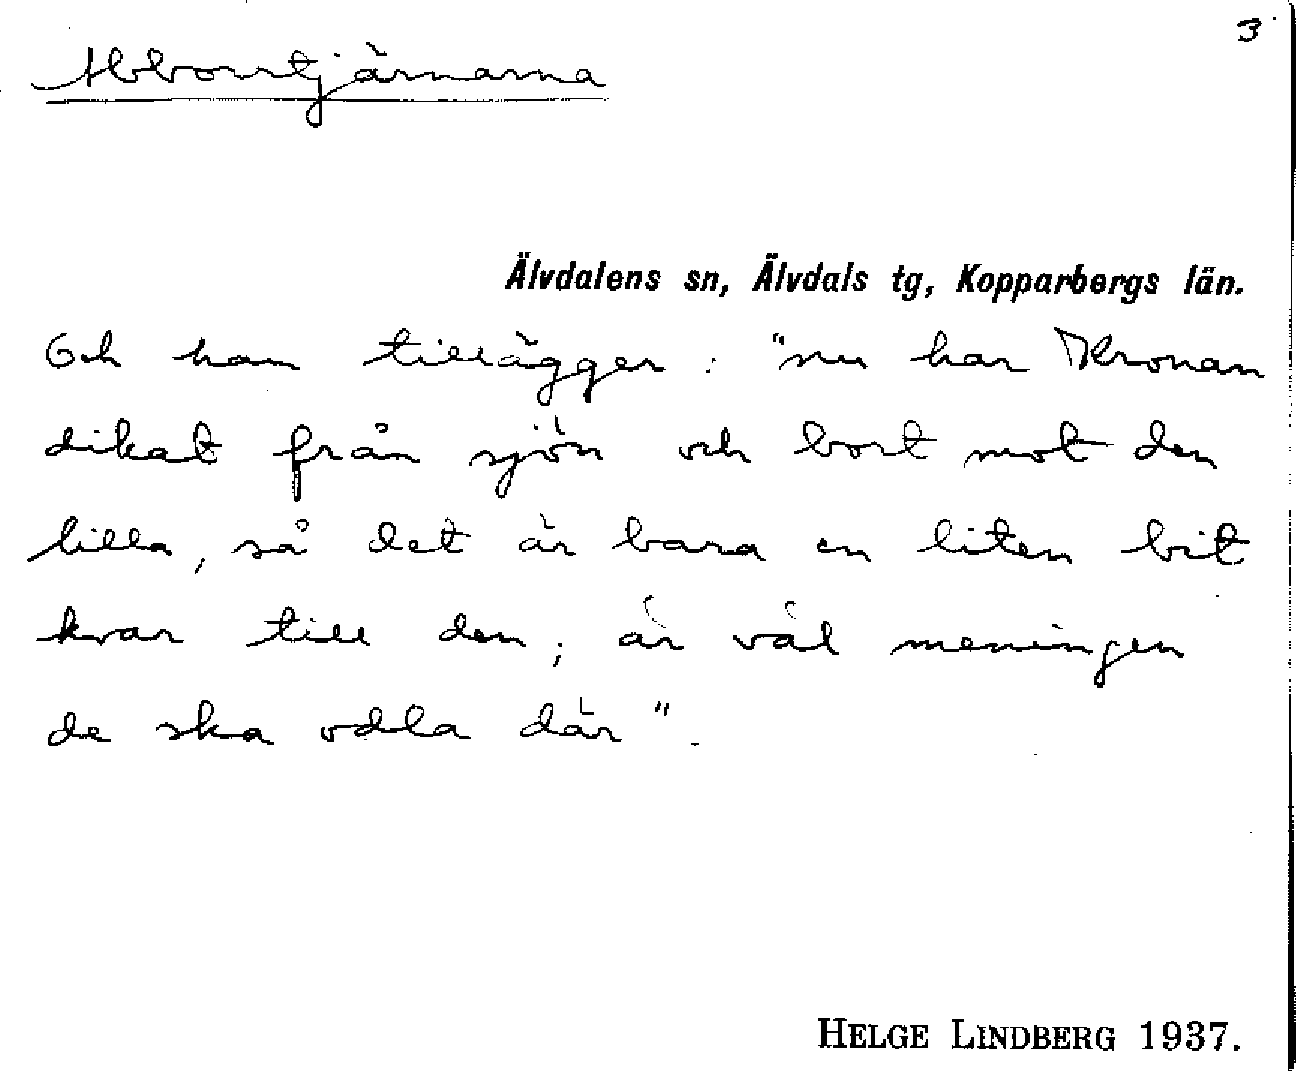 3
Abborrtjärnarna
Älvdalens sn, Älvdals tg, Kopparbergs län.
Och han tillägger: "nu har Kronan
dikat från sjön och bort mot den
lilla, så det är bara en liten bit
kvar till den; är väl meningen
de ska odla där".
HELGE LINDBERG 1937.